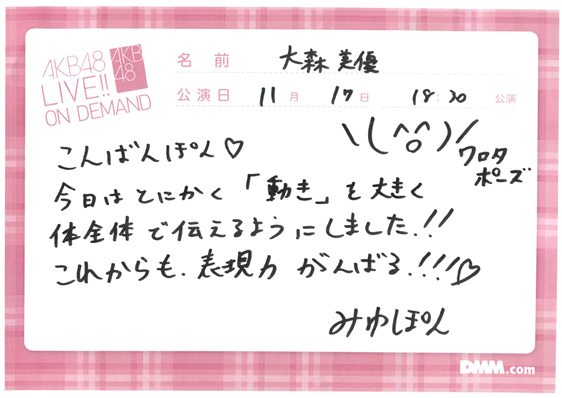 AKB48
LIVE!!
ON DEMAND
AKB
48
名 前 大森美優
公演日 11月 17日 18:30 公演
\(^o^)/
ワロタ
ポーズ
こんばんぽん♡
今日はとにかく「動き」を大きく
体全体で伝えるようにしました!!
これからも、表現力がんばる!!!♡
みゆぽん
DMM.com